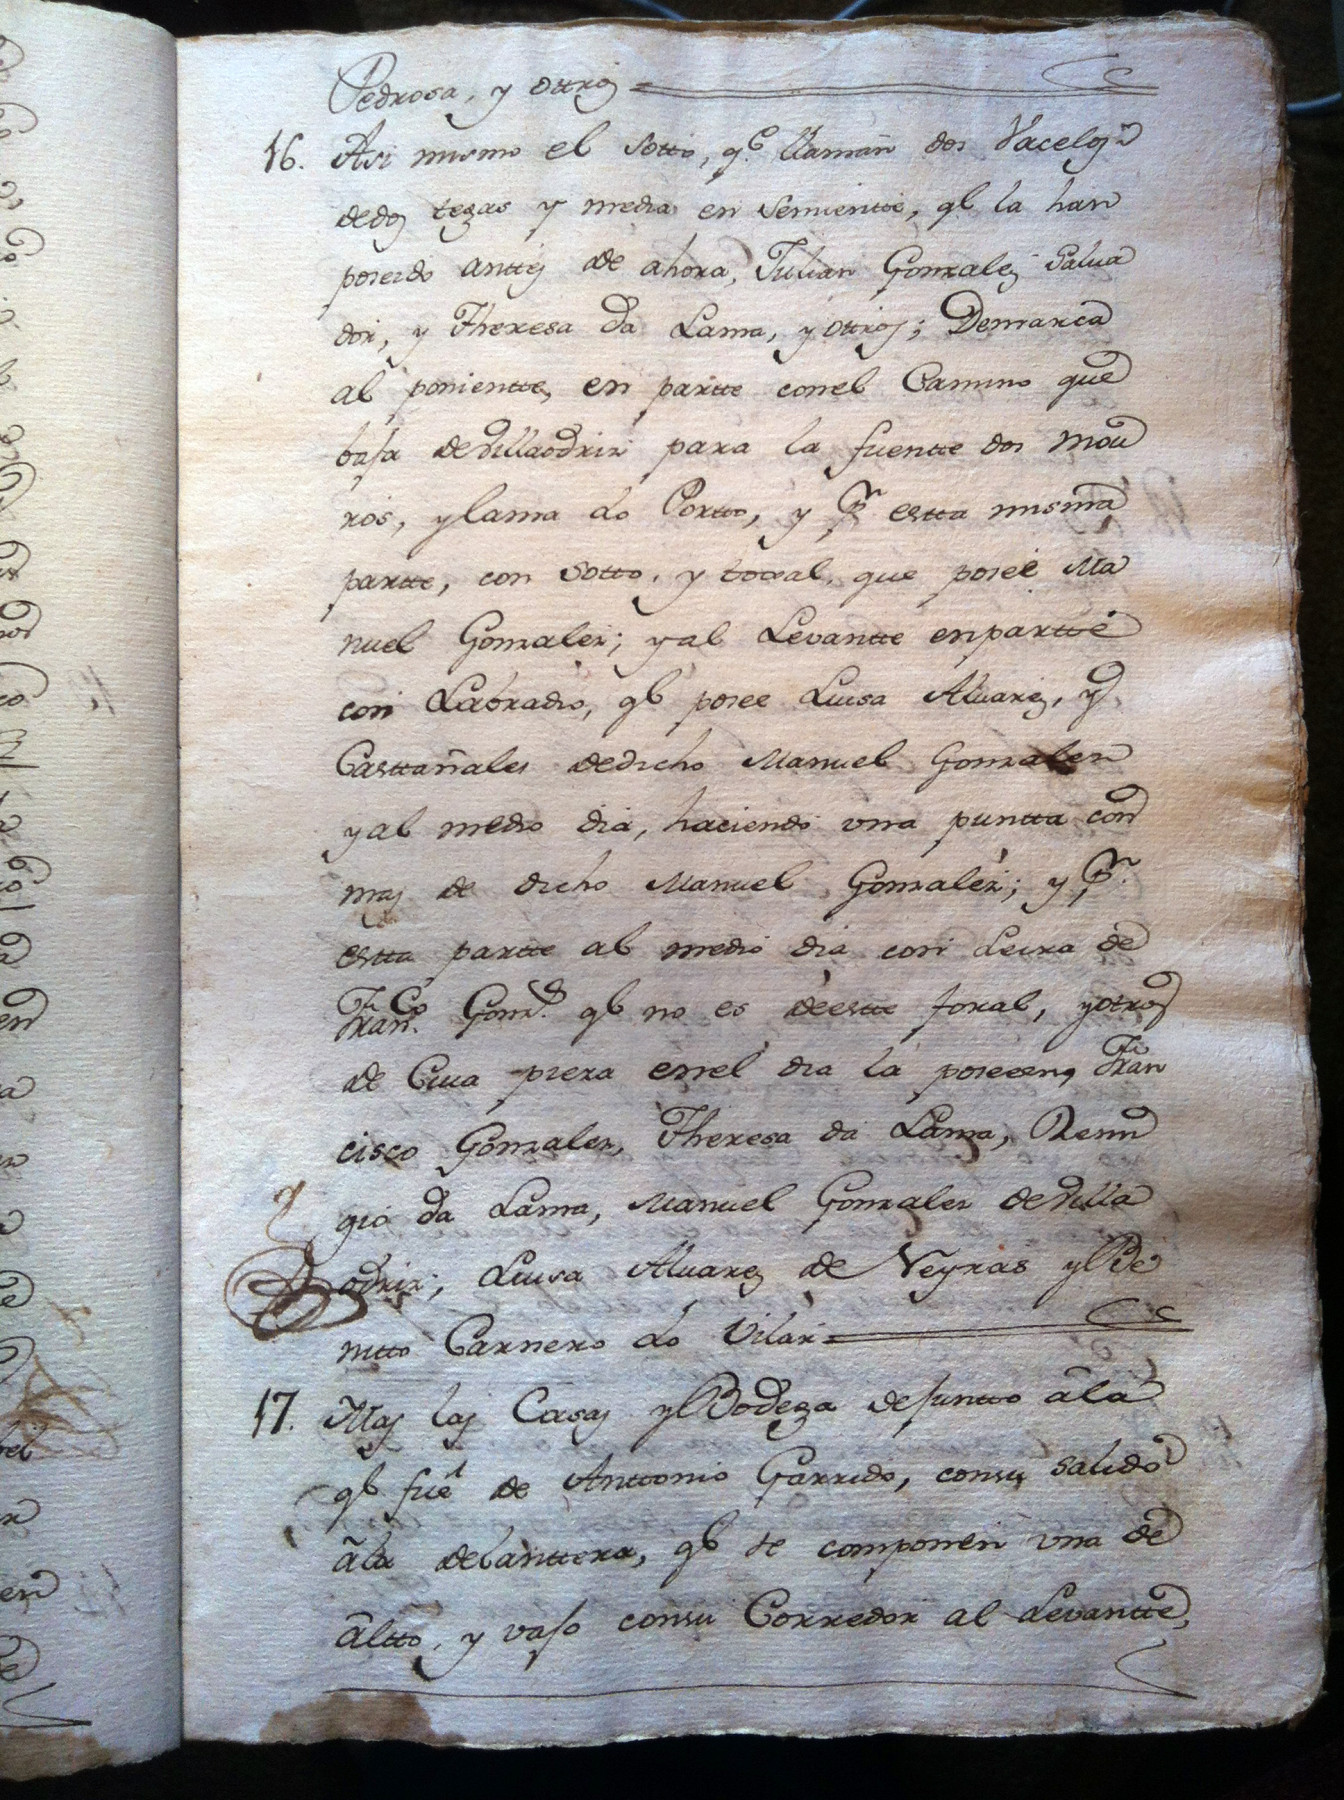 Pedrosa, y ottros
16. Asi mismo el Sotto, q.e llaman dos Vacelos
dedos tegas y media en Semientte, qe la han
poseido anttes de ahora, Julian Gonzales Salua
dor, y Theresa da Lama, y ottros; Demarca
al ponientte, en partte conel Camino que
baja deVillaodriz para la fuentte dos Mou
ros, ylama do Portto, y Pr estta misma
partte, con Sotto, y toxal, que poseé Ma
nuel Gonzalez; yal Levantte enpartté
con Labradio, qe posee Luisa Aluarez, y
Casttañales dedicho Manuel Gonzalez
yal medio dia, haciendo vna puntta con
mas de dicho Manuel Gonzalez; y Pr.
estta partte al medio dia con Leira de
Fran.co Gonz.s qe no es deestte foral, yotros
de Cuia pieza enel dia la poseeen, Fran
cisco Gonzalez, Theresa da Lama, Remi
gio da Lama, Manuel Gonzales deVilla
odriz; Luisa Aluarez de Neyras y Be
nitto Carnero do Vilar
17. Mas las Casas y Bodega dejuntto ála
qe fué de Anttonio Garrido, consu salido
ála delanttera, qe se componen vna de
áltto, y vajo consu Corredor al Levantte,